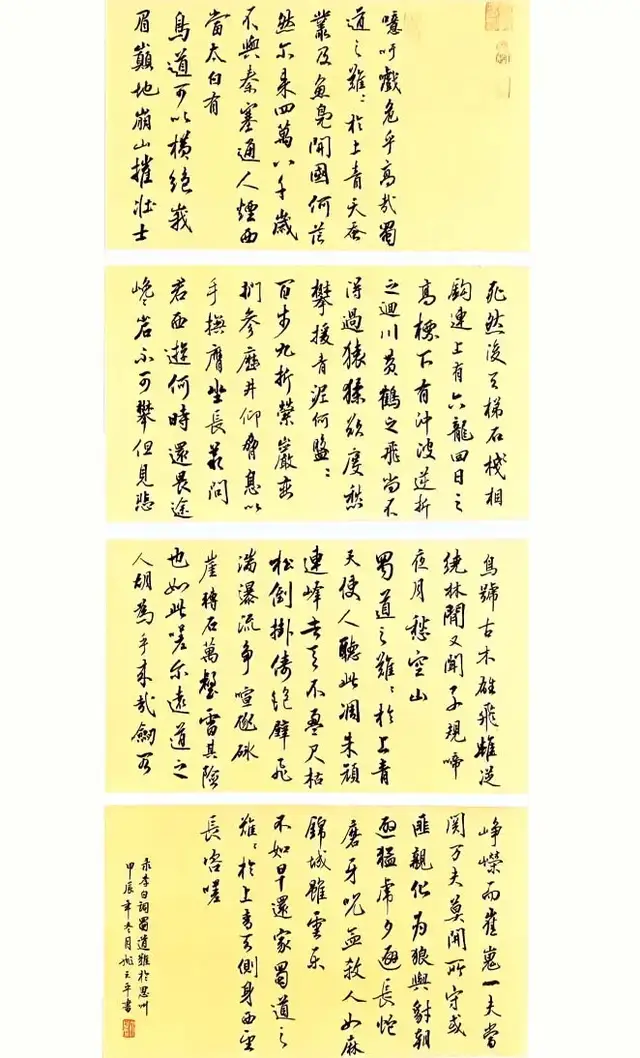 噫吁戲危乎高哉蜀
道之難〻於上青天蚕
叢及魚鳧開國何茫
然尔来四萬八千歲
不與秦塞通人煙西
當太白有
鳥道可以橫絕峩
眉巔地崩山摧壯士
死然後天梯石棧相
鉤連上有六龍回日之
高標下有沖波逆折
之迴川黃鶴之飛尚不
得過猿猱欲度愁
攀援青泥何盤〻
百步九折縈巖巒
捫參歷井仰脅息以
手撫膺坐長嘆問
君西遊何時還畏途
巉〻岩不可攀但見悲
鳥號古木雄飛雌從
繞林間又聞子規啼
夜月愁空山
蜀道之難〻於上青
天使人聽此凋朱顏
連峰去天不盈尺枯
松倒掛倚絕壁飛
湍瀑流爭喧豗砯
崖轉石萬壑雷其險
也如此嗟尔遠道之
人胡為乎來哉劍閣
崢嶸而崔嵬一夫當
關万夫莫開所守或
匪親化為狼與豺朝
避猛虎夕避長蛇
磨牙吮血殺人如麻
錦城雖雲樂
不如早還家蜀道之
難〻於上青天側身西望
長咨嗟
录李白詞蜀道難於思州
甲辰年冬月姚天平書